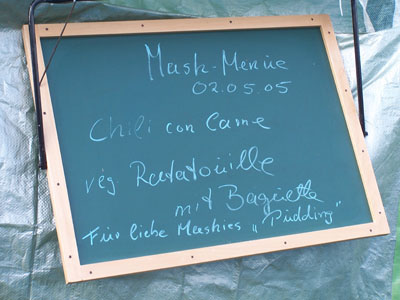 Mash-Menüe
02.05.05
Chili con Carne
veg Ratatouille
mit Baguette
Für liebe Mashies „Pudding"